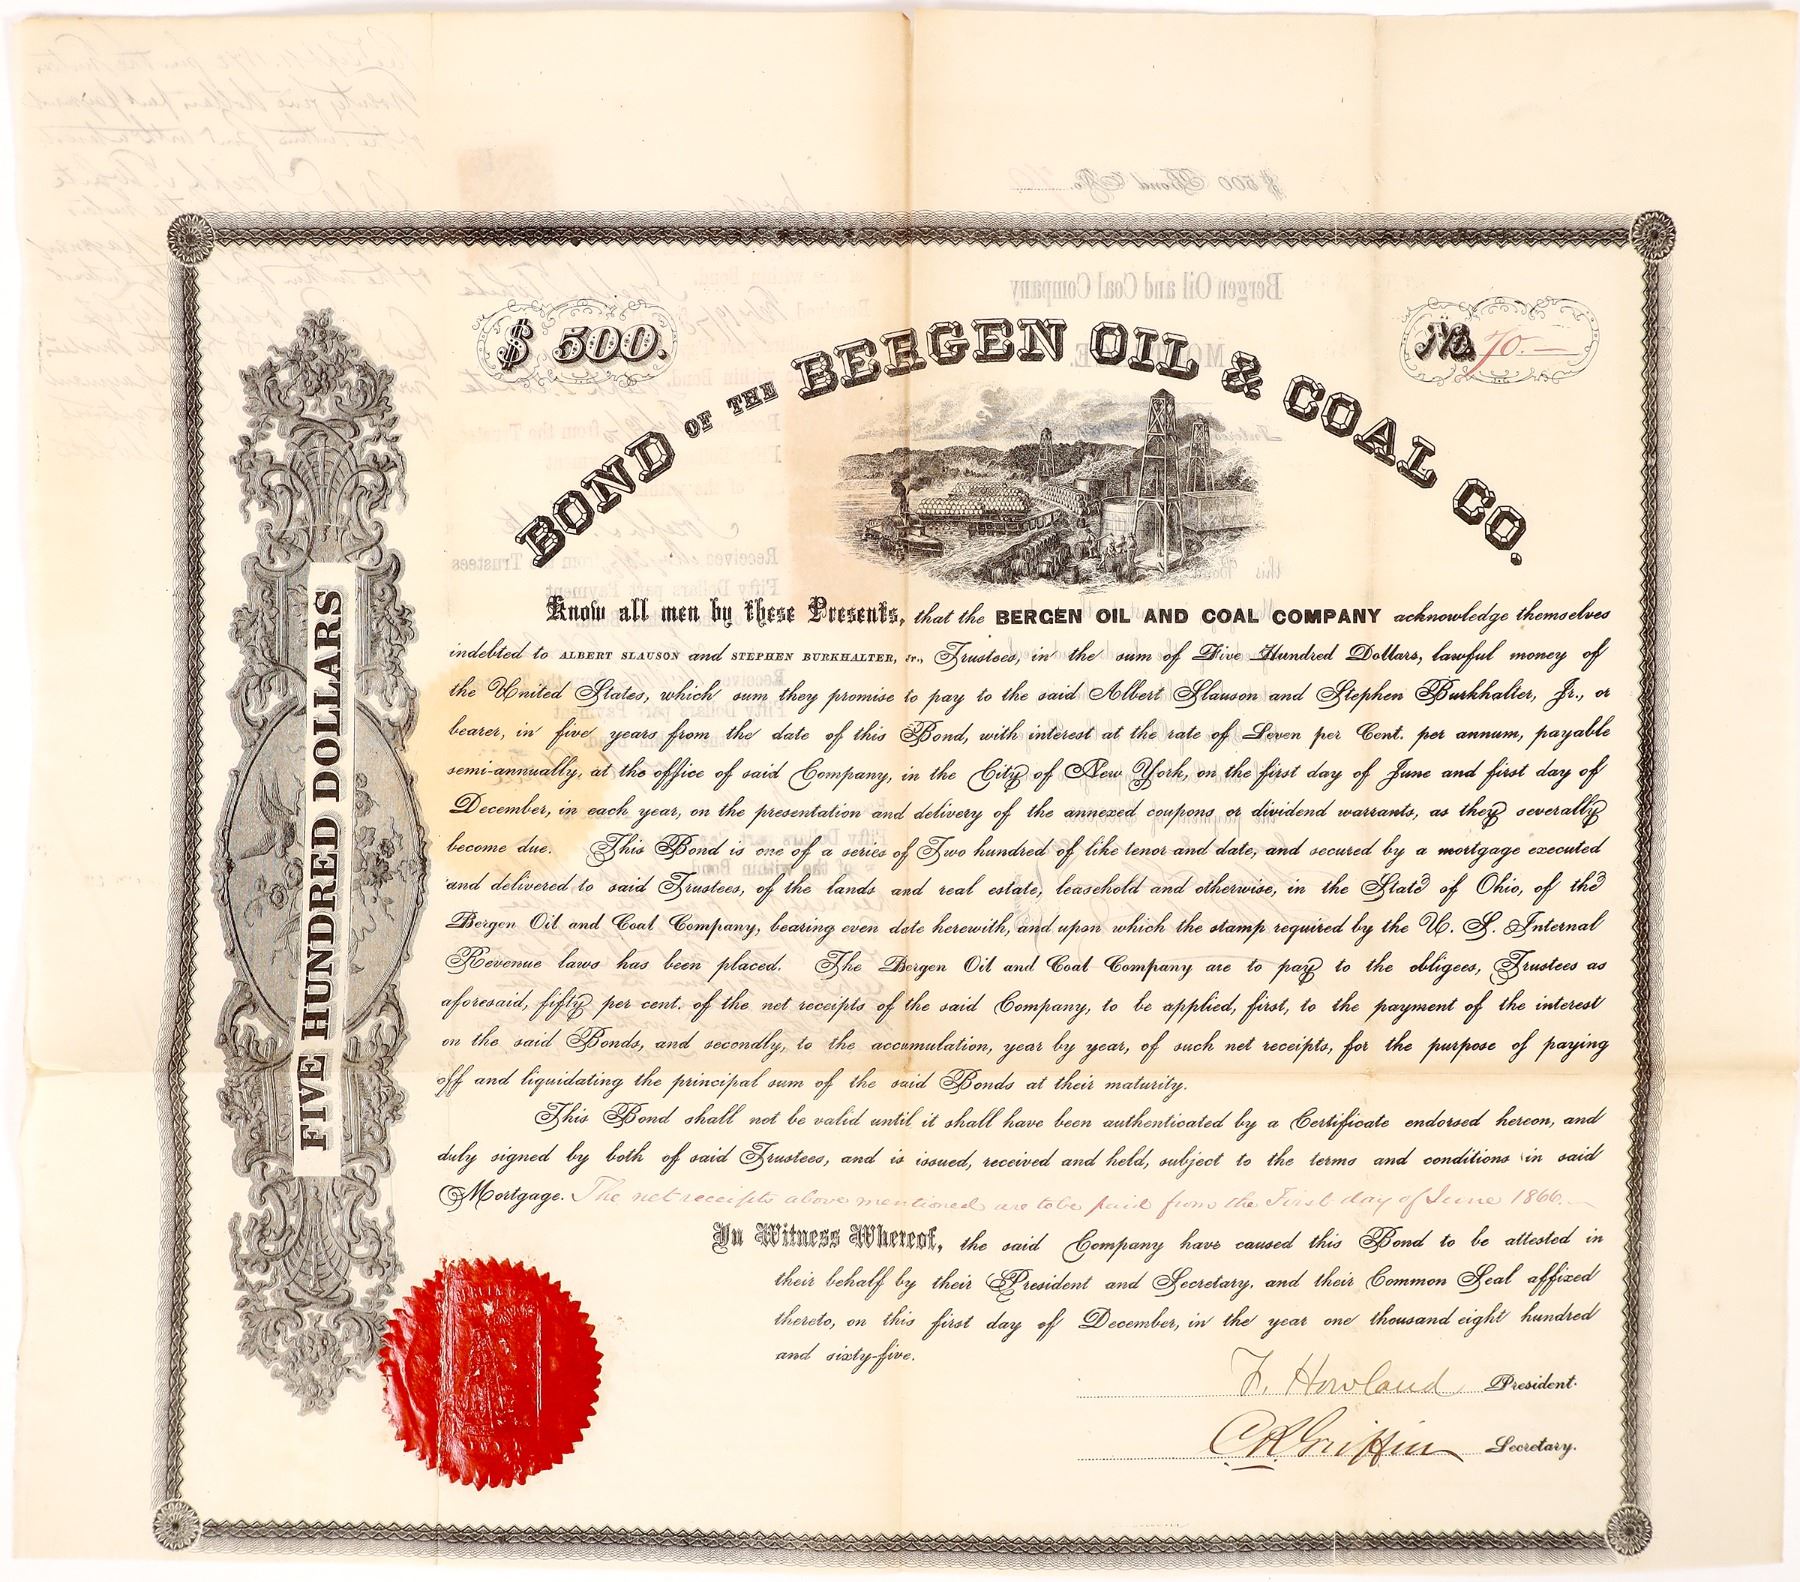 $ 500.
No. 70.
BOND OF THE BERGEN OIL & COAL CO.
FIVE HUNDRED DOLLARS
Know all men by these Presents, that the BERGEN OIL AND COAL COMPANY acknowledge themselves
indebted to ALBERT SLAUSON and STEPHEN BURKHALTER, Jr., Trustees, in the sum of Five Hundred Dollars, lawful money of
the United States, which sum they promise to pay to the said Albert Slauson and Stephen Burkhalter, Jr., or
bearer, in five years from the date of this Bond, with interest at the rate of Seven per Cent. per annum, payable
semi-annually, at the office of said Company, in the City of New York, on the first day of June and first day of
December, in each year, on the presentation and delivery of the annexed coupons or dividend warrants, as they severally
become due. This Bond is one of a series of Two hundred of like tenor and date, and secured by a mortgage executed
and delivered to said Trustees, of the lands and real estate, leasehold and otherwise, in the State of Ohio, of the
Bergen Oil and Coal Company, bearing even date herewith, and upon which the stamp required by the U. S. Internal
Revenue laws has been placed. The Bergen Oil and Coal Company are to pay to the obligees, Trustees as
aforesaid, fifty per cent. of the net receipts of the said Company, to be applied, first, to the payment of the interest
on the said Bonds, and secondly, to the accumulation, year by year, of such net receipts, for the purpose of paying
off and liquidating the principal sum of the said Bonds at their maturity.
This Bond shall not be valid until it shall have been authenticated by a Certificate endorsed hereon, and
duly signed by both of said Trustees, and is issued, received and held, subject to the terms and conditions in said
Mortgage. The net receipts above mentioned are to be paid from the First day of June 1866.
In Witness Whereof, the said Company have caused this Bond to be attested in
their behalf by their President and Secretary, and their Common Seal affixed
thereto, on this first day of December, in the year one thousand eight hundred
and sixty-five.
F. Howland President.
C R Griffin Secretary.